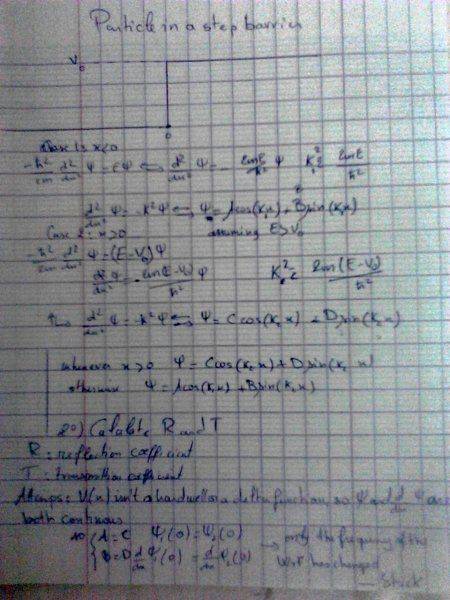 Particle in a step barrier
V₀
0
Case 1: x<0
-ħ²/2m d²/dx² Ψ = EΨ ⟺ d²/dx² Ψ = -2mE/ħ² Ψ K₁² = 2mE/ħ²
d²/dx² Ψ = -K²Ψ ⟺ Ψ = Acos(K₁x) + Bsin(K₁x)
Case 2: x>0 assuming E>V₀
-ħ²/2m d²/dx² Ψ = (E-V₀)Ψ
d²/dx² Ψ = -2m(E-V₀)/ħ² Ψ K₂² = 2m(E-V₀)/ħ²
d²/dx² Ψ = -K²Ψ ⟺ Ψ = Ccos(K₂x) + Dsin(K₂x)
whenever x>0 Ψ = Ccos(K₂x) + Dsin(K₂x)
otherwise Ψ = Acos(K₁x) + Bsin(K₁x)
2°) Calculate R and T
R: reflection coefficient
T: transmition coefficient
Attemps: V(x) isn't a hard wall or a delta function, so Ψ and d/dx Ψ are
both continous
so { A=C Ψ₁(0) = Ψ₂(0) → only the frequency of the
B=D d/dx Ψ₁(0) = d/dx Ψ₂(0) has changed
Stuck